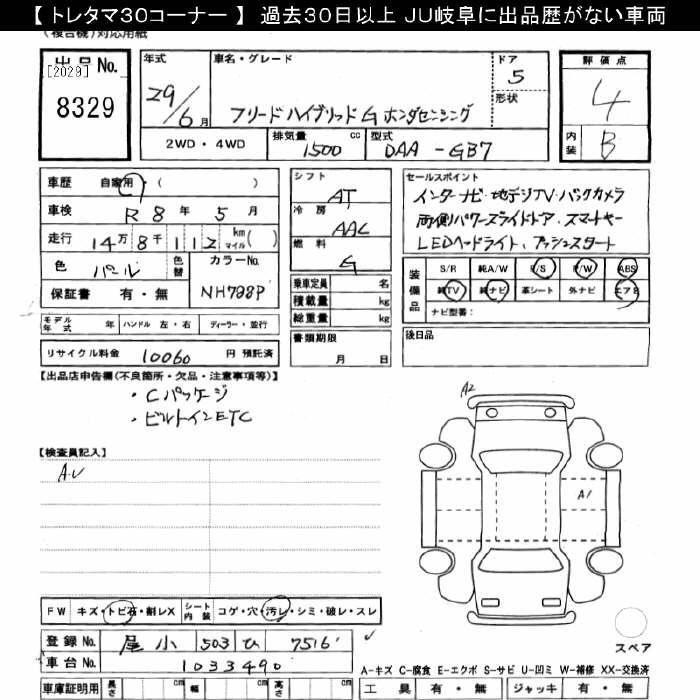 【 トレタマ30コーナー 】 過去30日以上 JU岐阜に出品歴がない車両
(複合機)対応用紙
出品No.
[2029]
8329
年式
29/6月
車名・グレード
フリードハイブリッドG ホンダセンシング
ドア
5
形状
評価点
4
内装
B
2WD ・ 4WD
排気量
1500 cc
型式
DAA - GB7
車歴 自家用 ( )
車検 R 8 年 5 月
走行 14万 8千 112 km マイル ( )
色 パール
色替
カラーNo.
NH788P
保証書 有 ・ 無
モデル年式 年 ハンドル 左 ・ 右 ディーラー ・ 並行
リサイクル料金 10060 円 預託済
シフト
AT
冷房
AAC
燃料
G
乗車定員 名
積載量 kg
総重量 kg
書類期限
月 日
セールスポイント
インターナビ・地デジTV・バックカメラ
両側パワースライドドア、スマートキー
LEDヘッドライト、プッシュスタート
装備品
S/R 純A/W P/S P/W ABS
純TV 純ナビ 革シート 外ナビ エアB
ナビ型番:
後日品
【出品店申告欄(不良箇所・欠品・注意事項等)】
・Cパッケージ
・ビルトインETC
【検査員記入】
A.U
A2
A1
FW キズ・トビ石・割レX シート内装 コゲ・穴・汚レ・シミ・破レ・スレ
登録No. 尾小 503 ひ 7516
車台No. 1033490
スペア
A-キズ C-腐食 E-エクボ S-サビ U-凹ミ W-補修 XX-交換済
車庫証明用 長さ cm 幅 cm 高さ cm
工具 有 ・ 無 ジャッキ 有 ・ 無